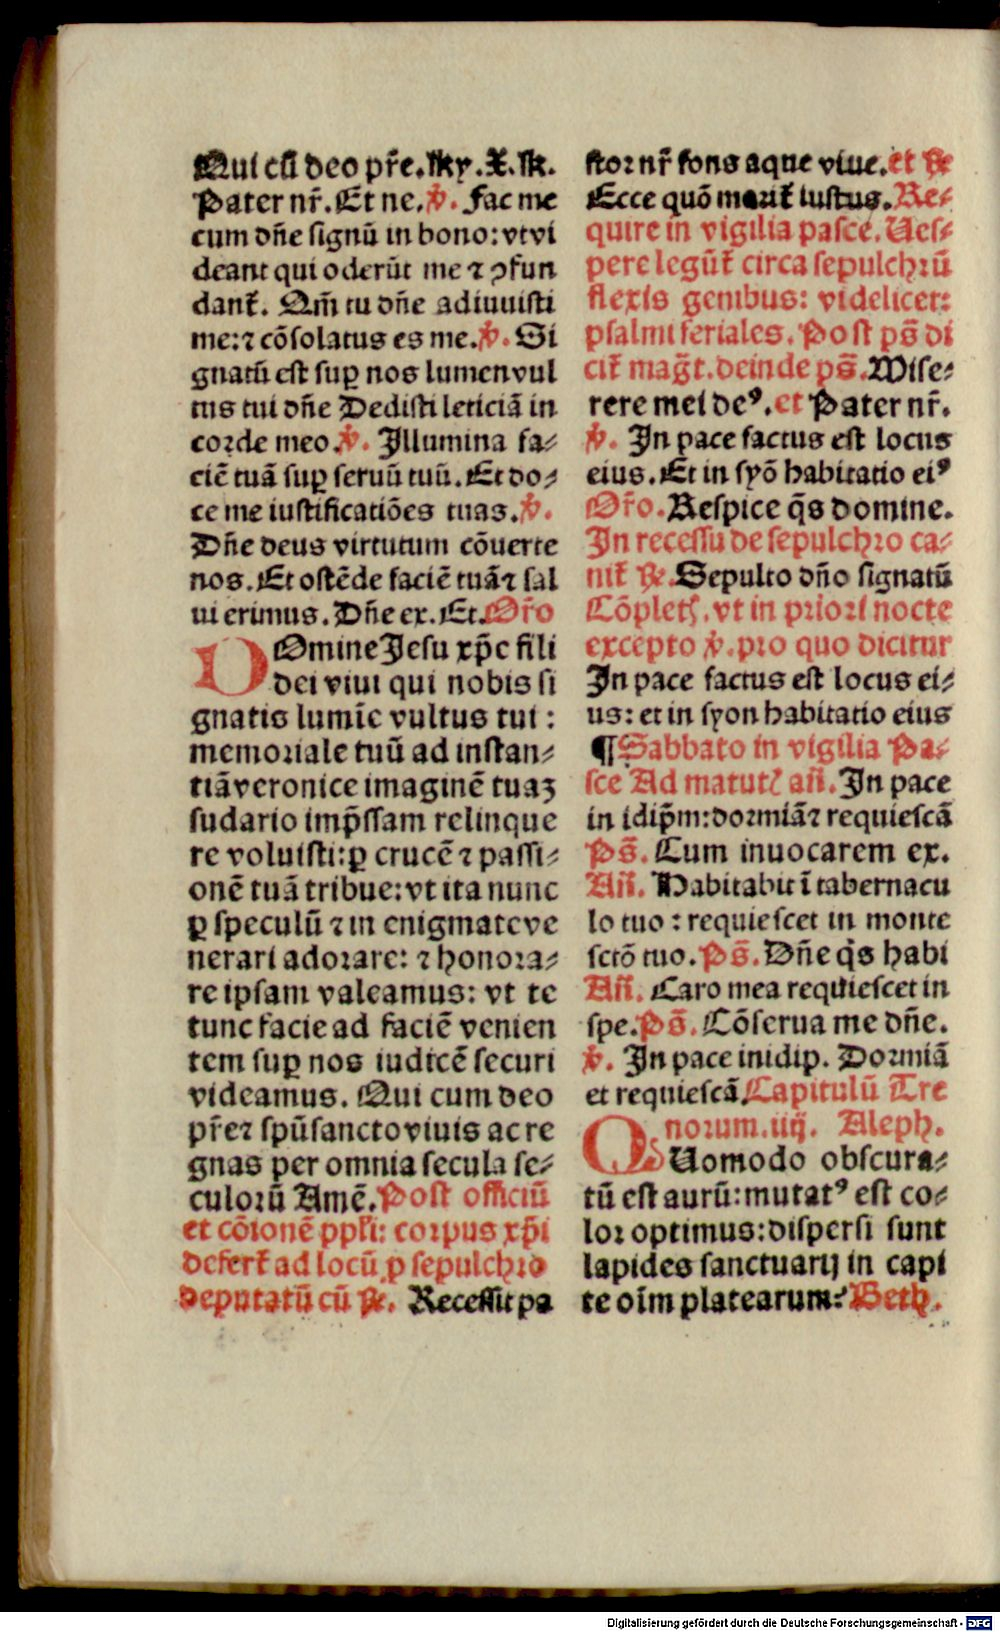 Qui cū deo pr̄e. Ky. X. K.
Pater nr̄. Et ne. ℣. Fac me
cum dn̄e signū in bono: vt vi
deant qui oderūt me ⁊ ꝯfun
dant᷑. Qm̄ tu dn̄e adiuuisti
me: ⁊ cōsolatus es me. ℣. Si
gnatū est suꝑ nos lumen vul
tus tui dn̄e Dedisti leticiā in
corde meo. ℣. Illumina fa⸗
ciē tuā suꝑ seruū tuū. Et do⸗
ce me iustificatiōes tuas. ℣.
Dn̄e deus virtutum cōuerte
nos. Et ostēde faciē tuā ⁊ sal
ui erimus. Dn̄e ex. Et. Or̄o
DOmine Jesu xp̄e fili
dei viui qui nobis si
gnatis lumīe vultus tui :
memoriale tuū ad instan⸗
tiā veronice imaginē tuaꝫ
sudario imp̄ssam relinque
re voluisti: ꝑ crucē ⁊ passi⸗
onē tuā tribue: vt ita nunc
ꝑ speculū ⁊ in enigmate ve
nerari adorare: ⁊ honora⸗
re ipsam valeamus: vt te
tunc facie ad faciē venien
tem suꝑ nos iudicē securi
videamus. Qui cum deo
pr̄e ⁊ spū sancto viuis ac re
gnas per omnia secula se⸗
culorū Amē. Post officiū
et cōionē ppl̄i: corpus xp̄i
defert᷑ ad locū ꝓ sepulchro
deputatū cū ℟. Recessit pa
stor nr̄ fons aque viue. et ℟
Ecce quō morit᷑ iustus. Re⸗
quire in vigilia pasce. Ues⸗
pere legūt᷑ circa sepulchrū
flexis genibus: videlicet:
psalmi feriales. Post ps̄ di
cit᷑ mag̅t. deinde ps̄. Mise⸗
rere mei deꝰ. et Pater nr̄.
℣. In pace factus est locus
eius. Et in syō habitatio eiꝰ
Or̄o. Respice q̄s domine.
In recessu de sepulchro ca⸗
nit᷑ ℟. Sepulto dn̄o signatū
Cōplet᷑. vt in priori nocte
excepto ℣. pro quo dicitur
In pace factus est locus ei⸗
us: et in syon habitatio eius
¶ Sabbato in vigilia Pa⸗
sce Ad matut᷑ an̄. In pace
in idip̄m: dormiā ⁊ requiescā
Ps̄. Cum inuocarem ex.
An̄. Habitabit ī tabernacu
lo tuo : requiescet in monte
sctō tuo. Ps̄. Dn̄e q̄s habi
An̄. Caro mea requiescet in
spe. Ps̄. Cōserua me dn̄e.
℣. In pace in idip. Dormiā
et requiescā. Capitulū Tre
norum. iiij. Aleph.
QUomodo obscura⸗
tū est aurū: mutatꝰ est co⸗
lor optimus: dispersi sunt
lapides sanctuarij in capi
te oīm platearum: Beth.
Digitalisierung gefördert durch die Deutsche Forschungsgemeinschaft - DFG